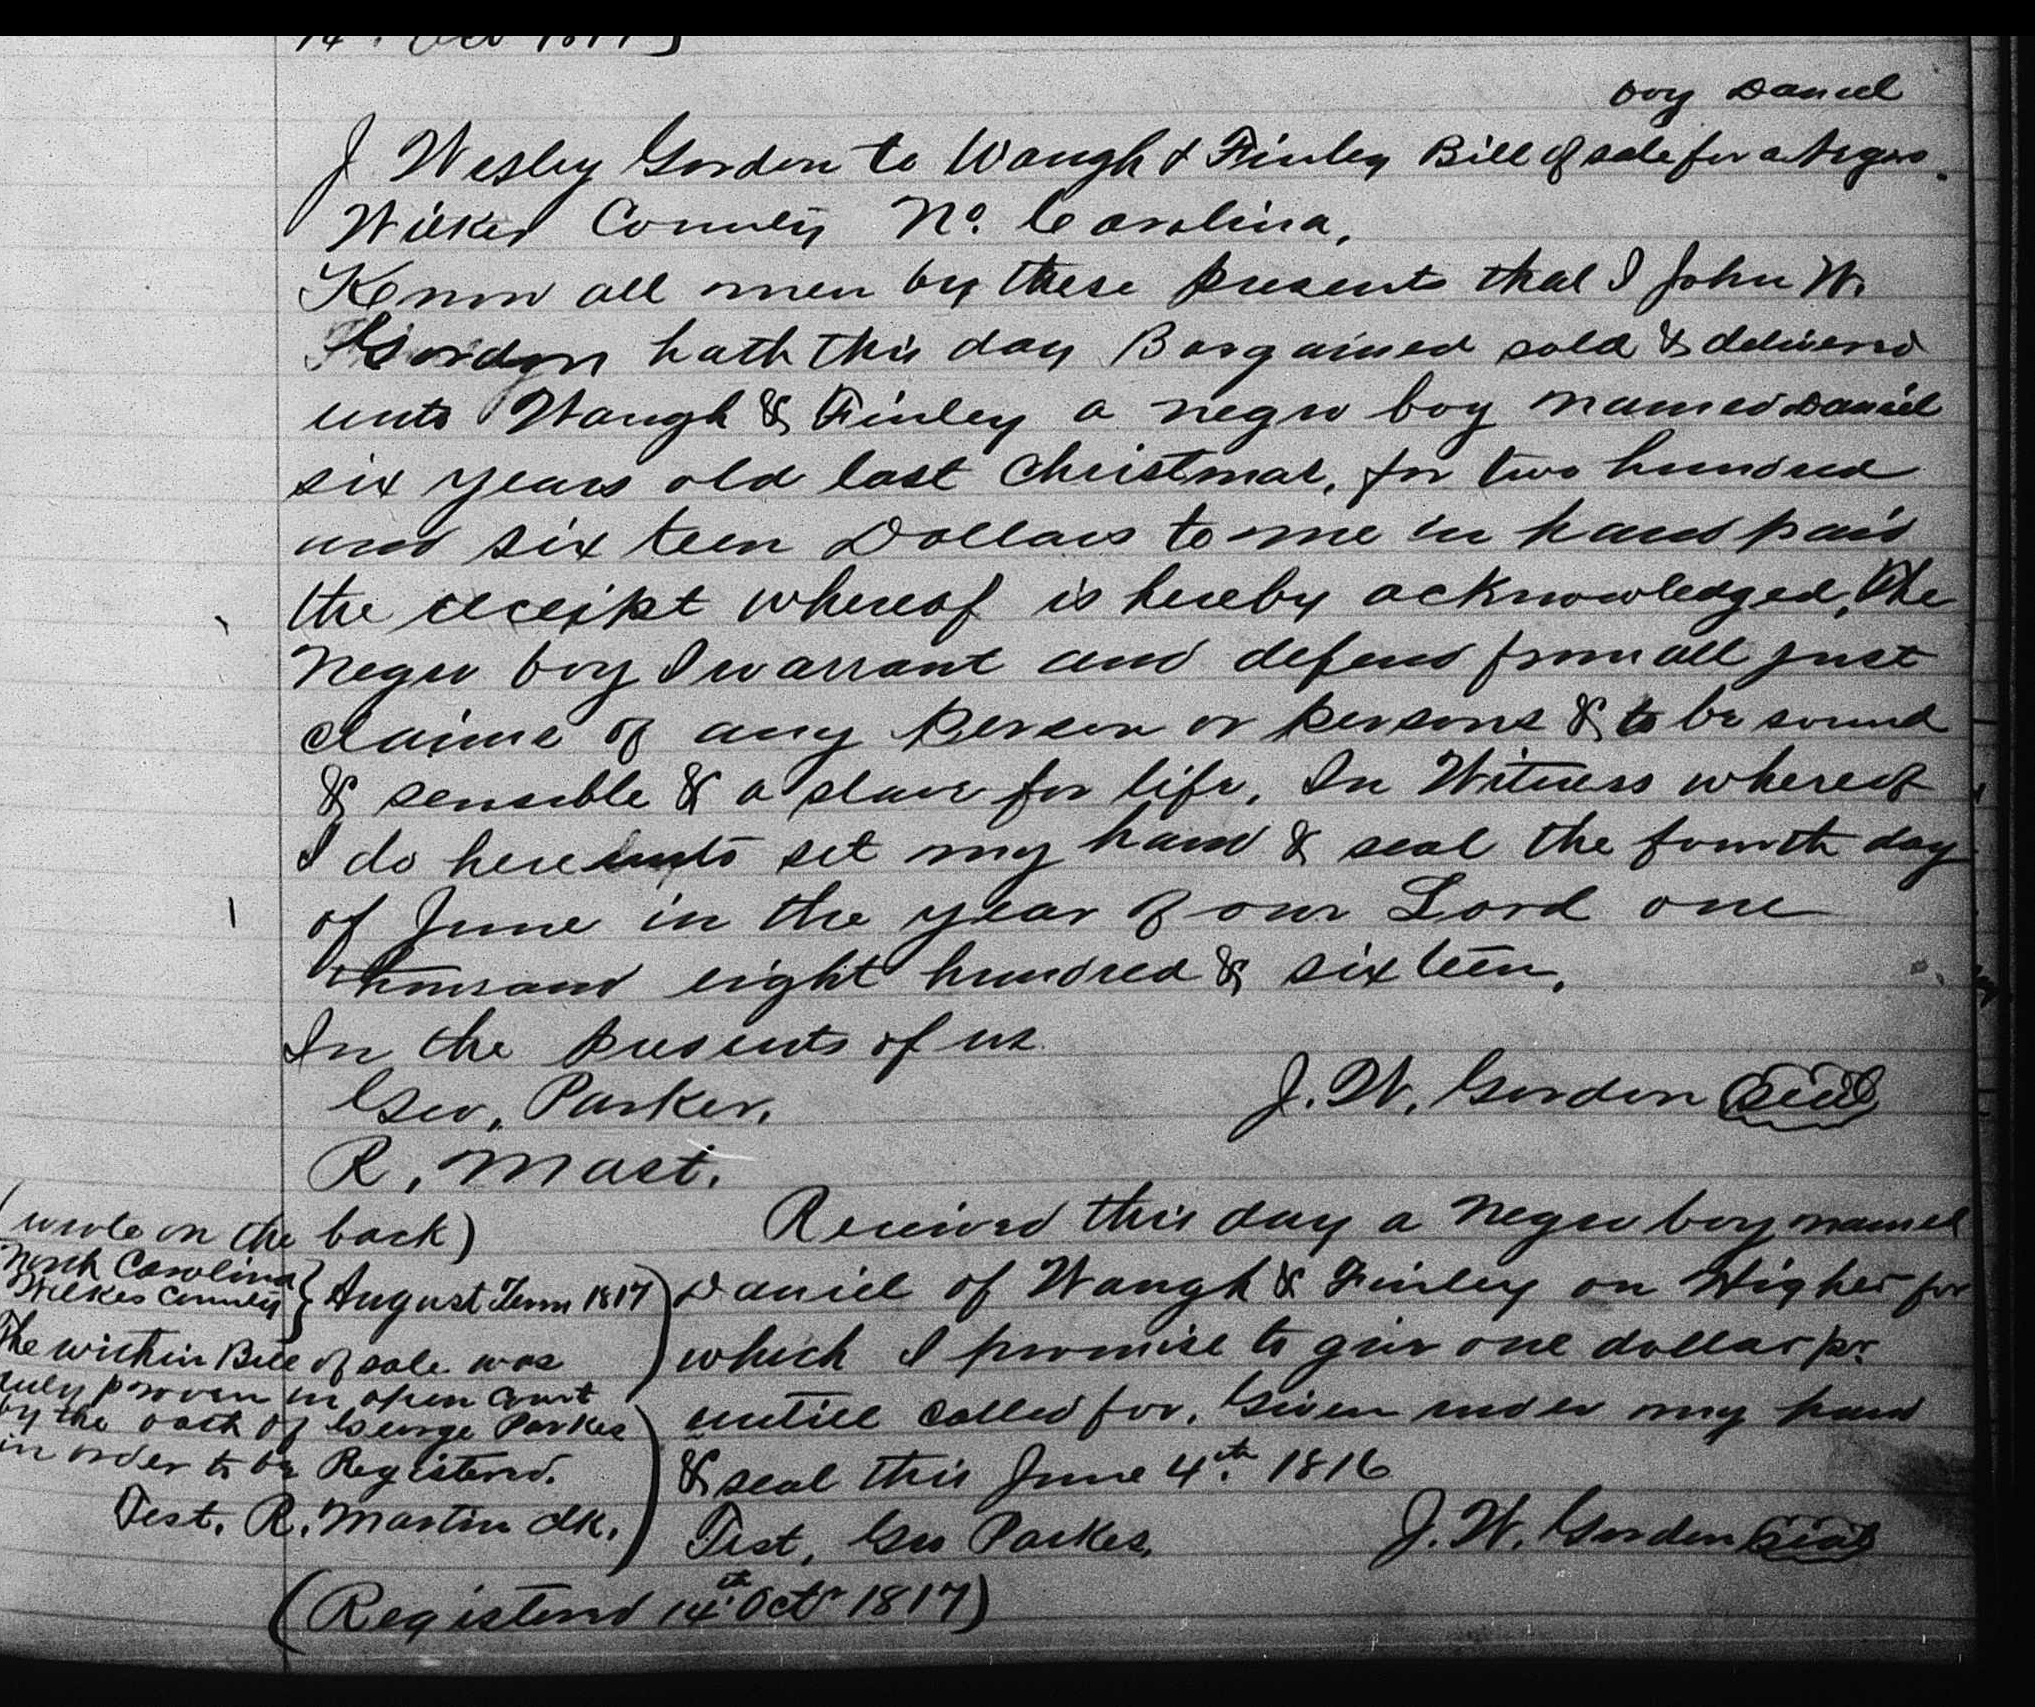 14th Oct 1817)
boy Daniel
J Wesley Gordon to Waugh & Finley Bill of sale for a Negro
Wilkes County No. Carolina,
Know all men by these presents that I John W.
Gordon hath this day Bargained sold & deliverd
unto Waugh & Finley a negro boy named Daniel
six years old last Christmas, for two hundred
and six teen Dollars to me in hand paid
the receipt whereof is hereby acknowledged, the
Negro boy I warrant and defend from all just
claims of any person or persons & to be sound
& sensible & a slave for life, In Witness whereof
I do hereunto set my hand & seal the fourth day
of June in the year of our Lord one
thousand eight hundred & sixteen.
In the presents of us
Geo, Parker, J. W. Gordon (Seal)
R, Mast.
(wrote on the back)
North Carolina
Wilkes County } August Term 1817
The within Bill of sale was
duly proven in open court
by the oath of George Parkes
in order to be Registerd.
Test. R. Martin clk.
Received this day a Negro boy named
Daniel of Waugh & Finley on Highes for
which I promise to give one dollar pr.
untill called for. Given under my hand
& seal this June 4th. 1816
Test, Geo Parkes, J. W. Gordon (Seal)
(Registerd 14th. Octr 1817)